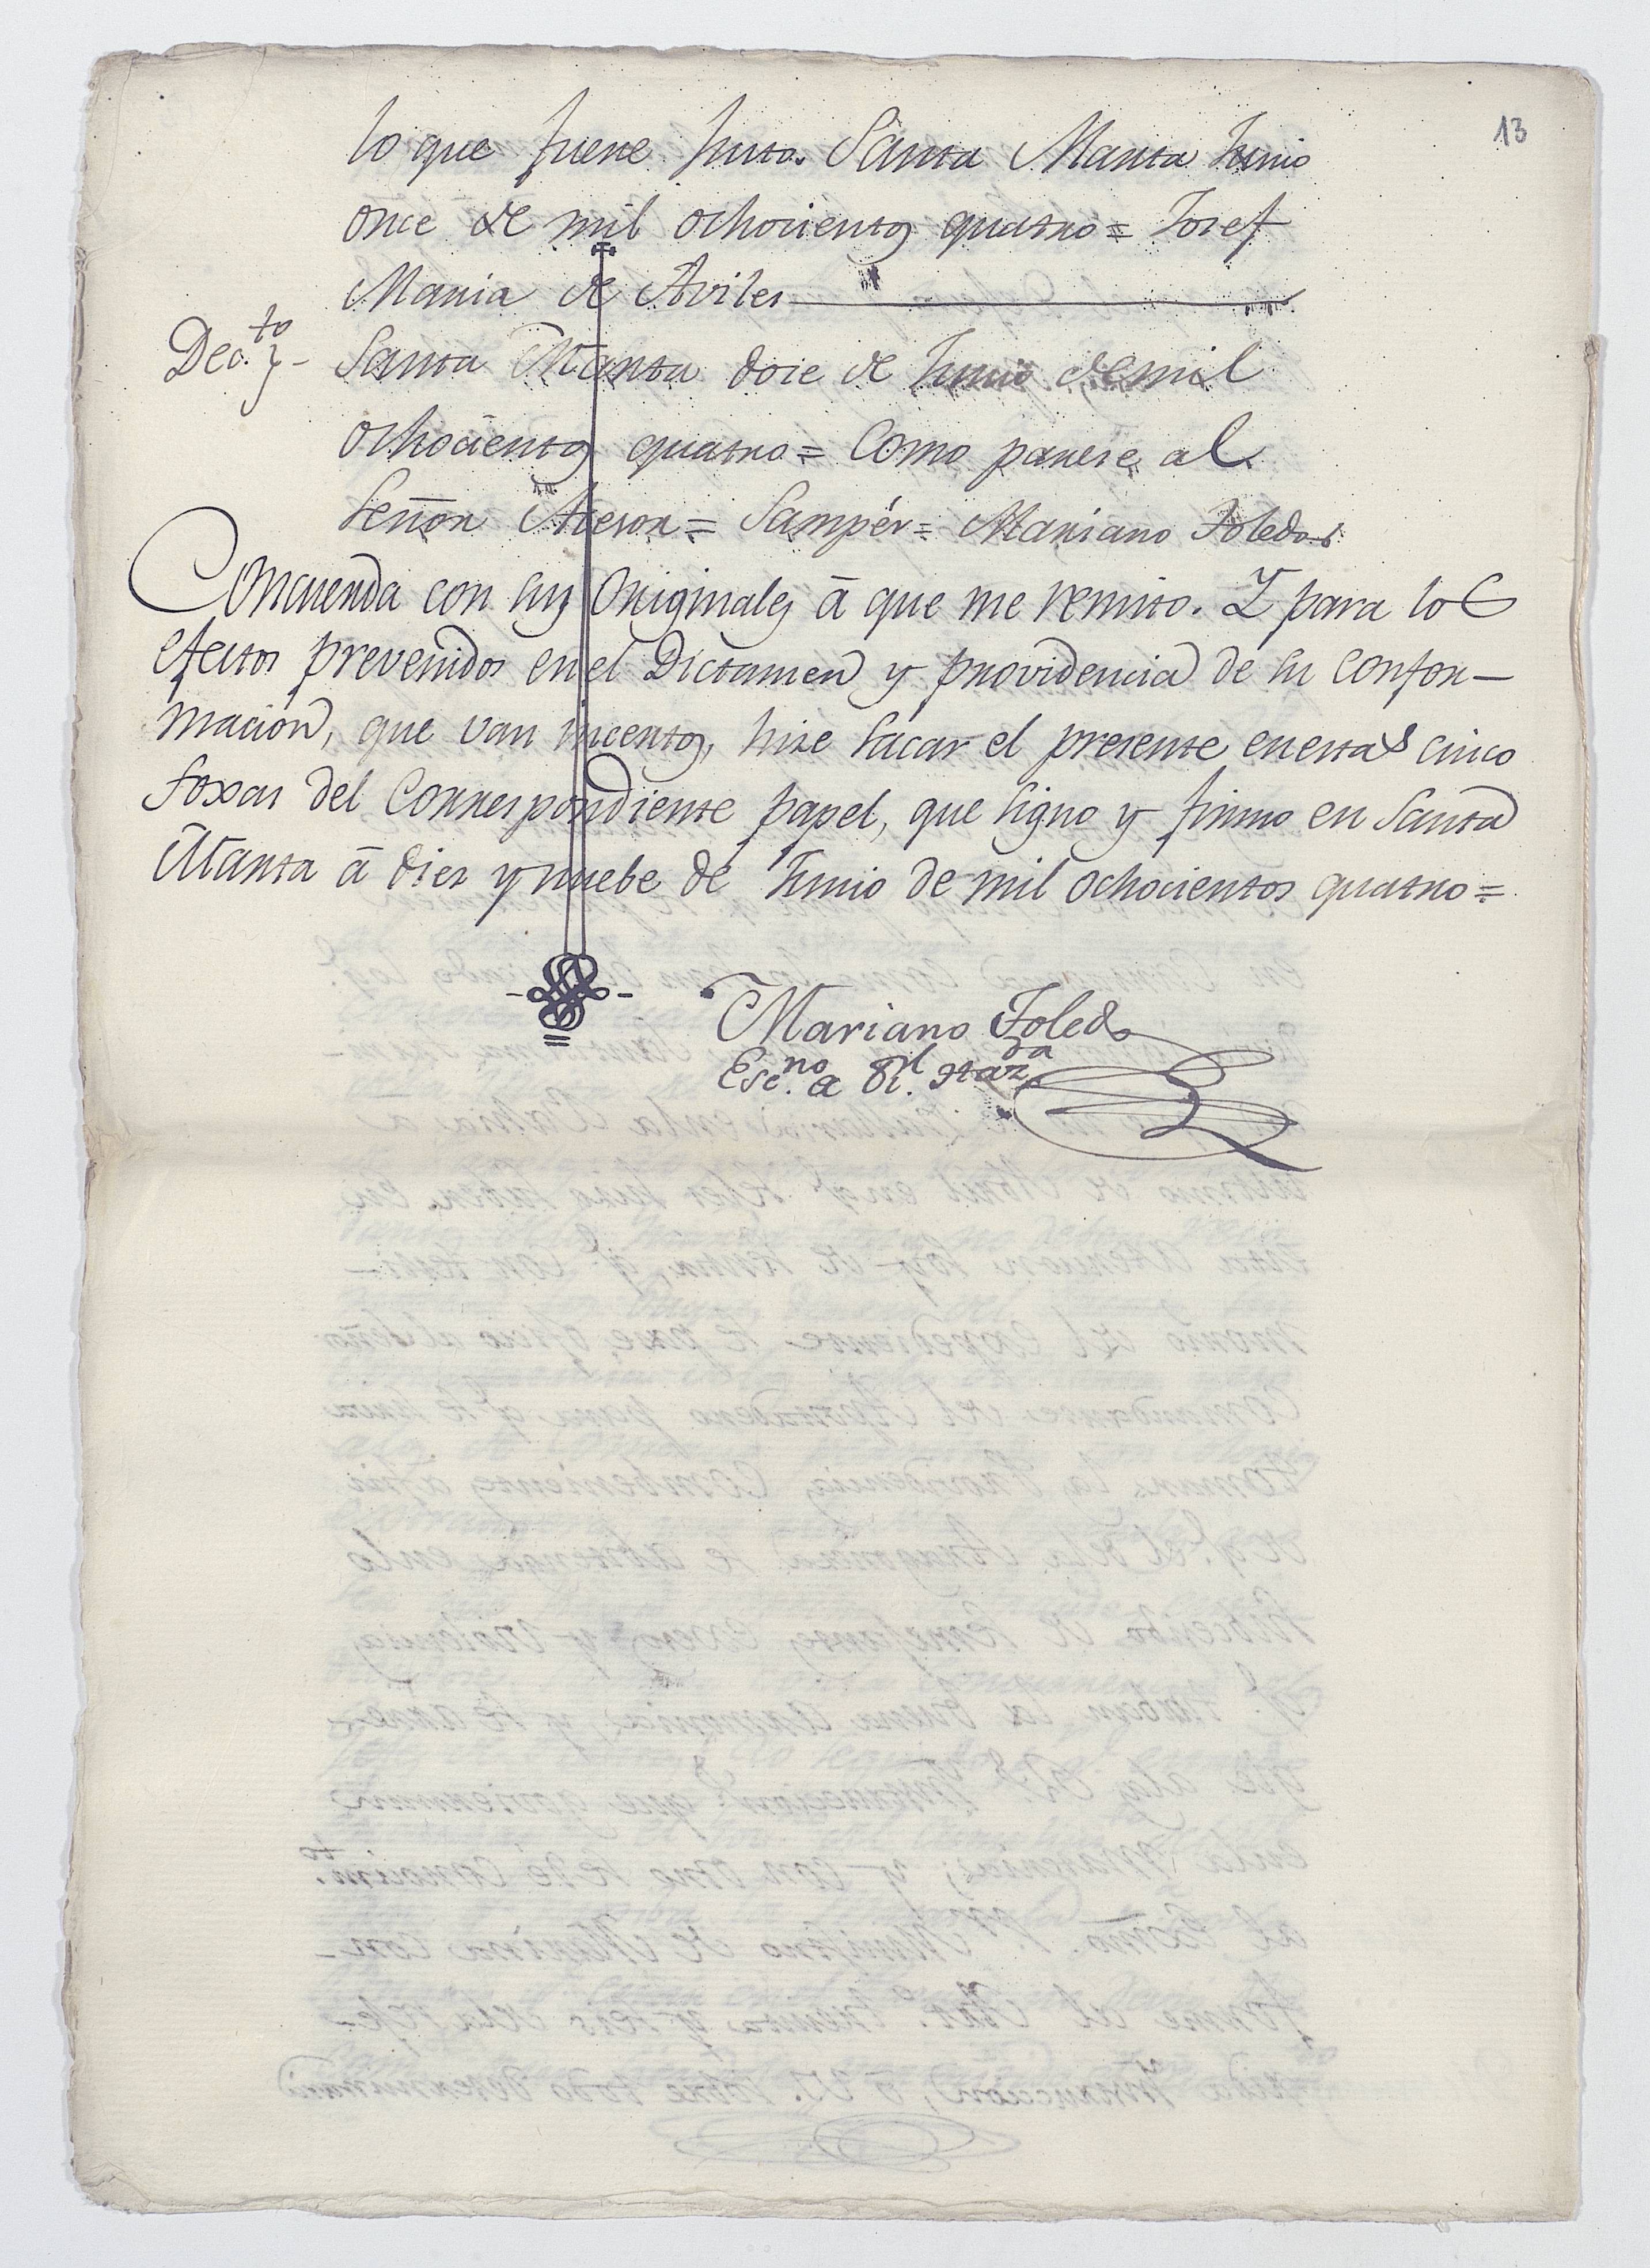 13
lo que fuere justo. Santa Marta Junio
once de mil ochocientos quatro = Josef
Maria de Aviles
Dec.to - Santa Marta doce de Junio de mil
ochocientos quatro = Como parece al
Señor Acesor = Sampér = Mariano Toledo
Concuerda con sus Originales â que me remito. Y para los
efectos prevenidos en el Dictamen y providencia de su confor-
macion, que van incertos, hize sacar el presente en estas cinco
foxas del Correspondiente papel, que signo y firmo en Santa
Marta â diez y nuebe de Junio de mil ochocientos quatro =
Mariano Toledo
Esc.no de Rl. Hazda